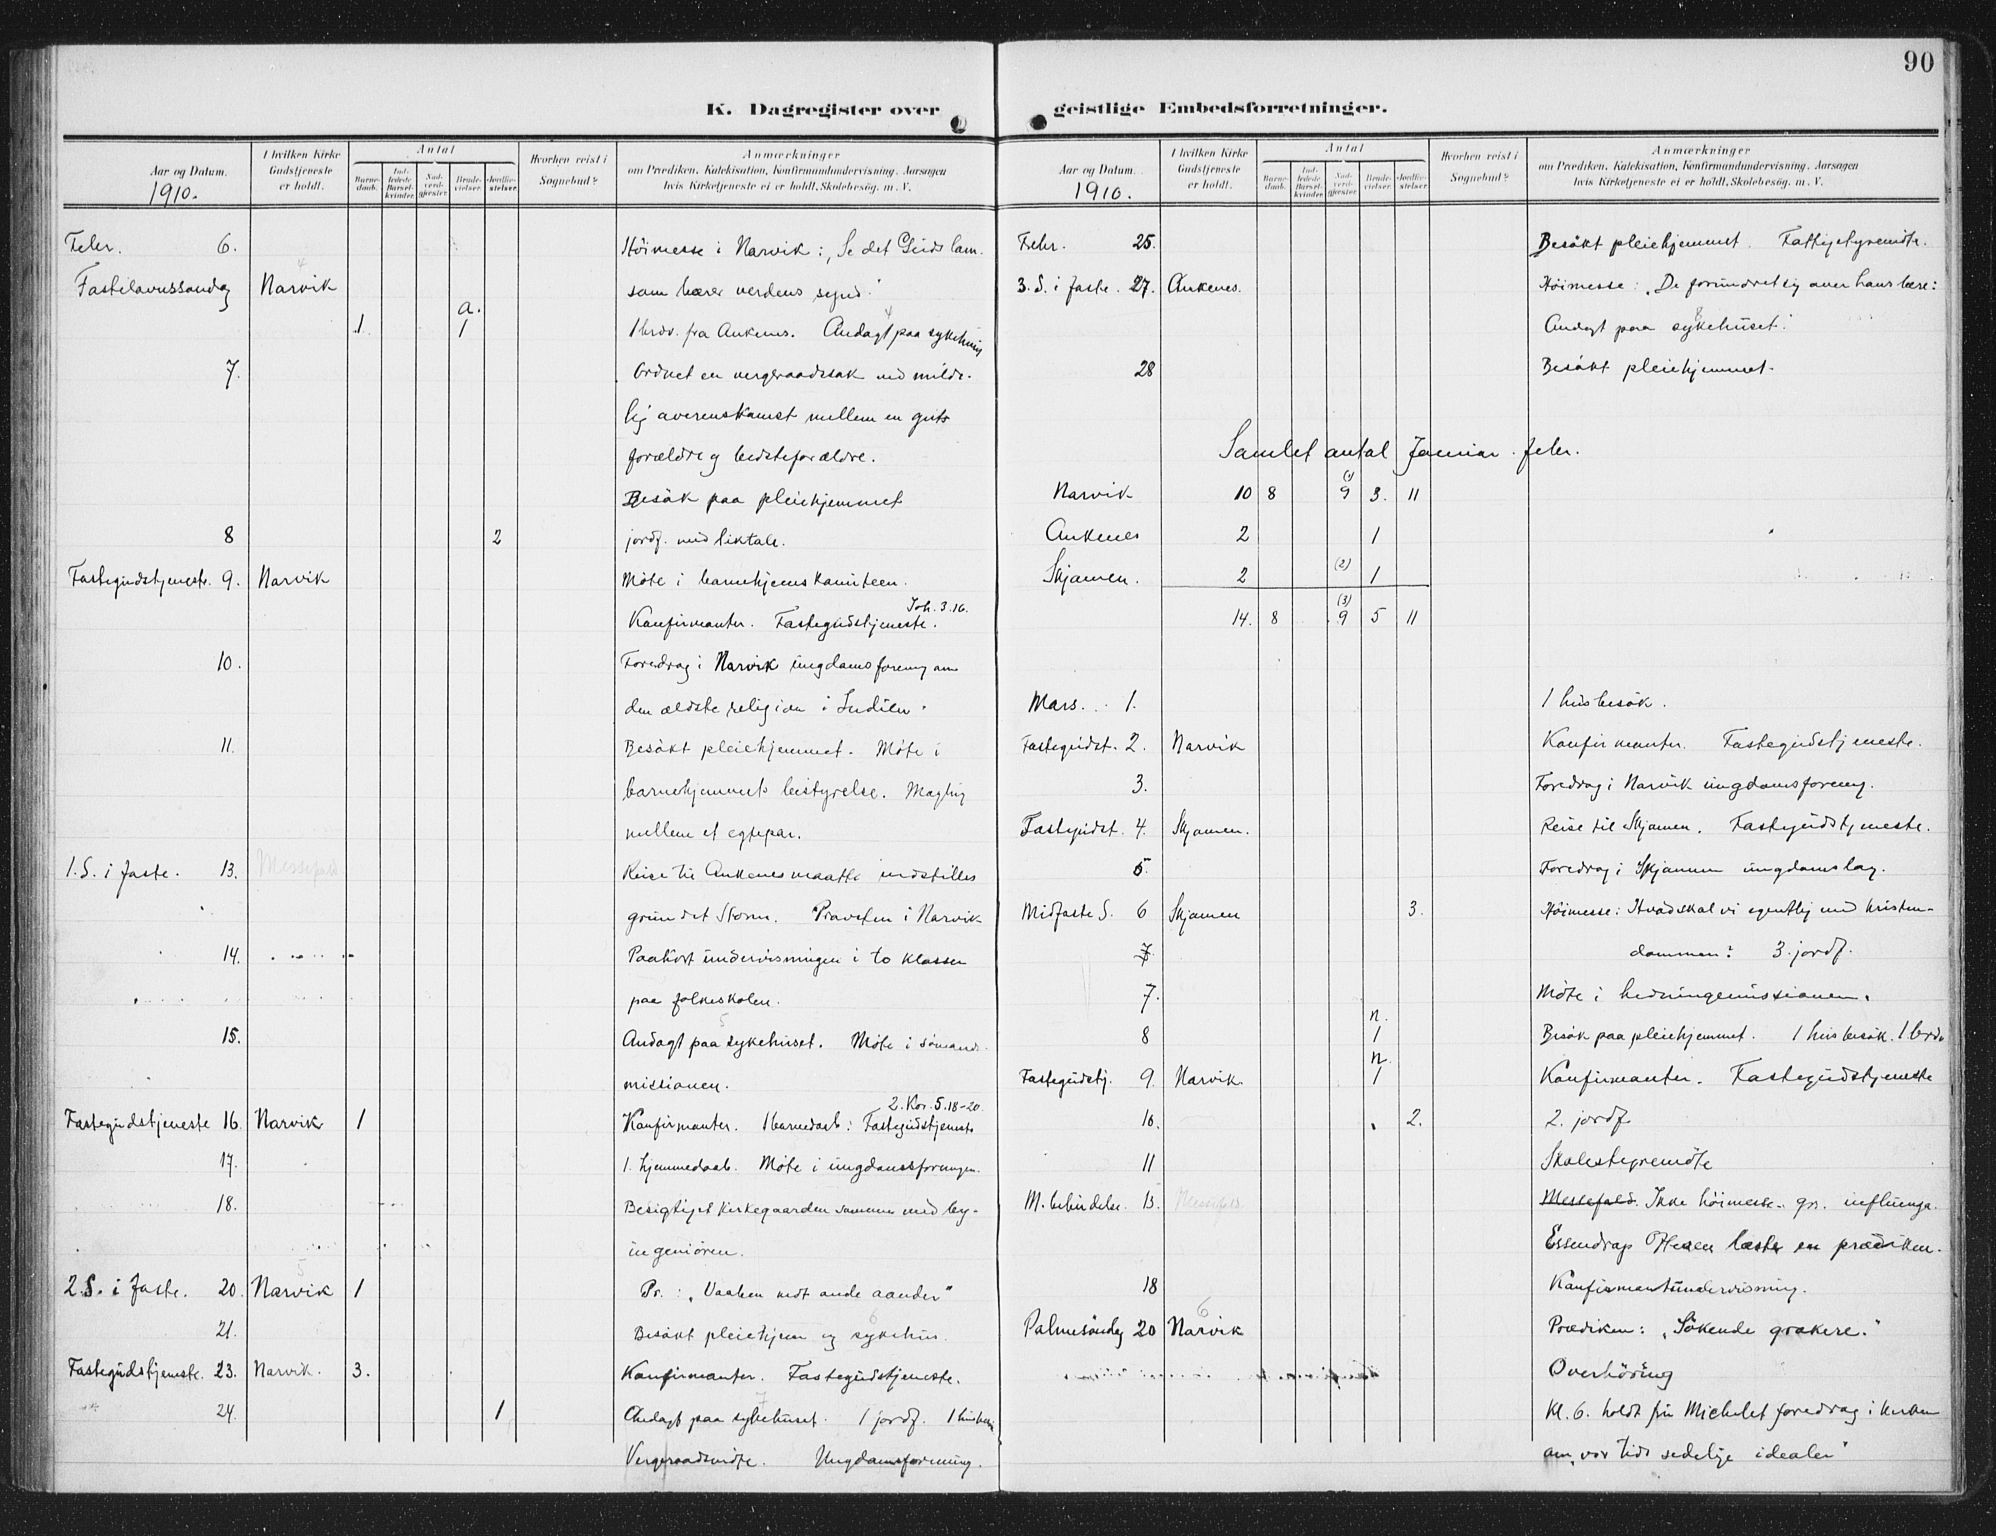 90
K. Dagregister over geistlige Embedsforretninger.
Aar og Datum.
1910.
I hvilken Kirke Gudstjeneste er holdt.
Antal
Barne-daab.
Ind-ledede Barsel-kvinder.
Nad-verd-gjester.
Brude-vielser.
Jordfæ-stelser.
Hvorhen reist i Sognebud?
Anmærkninger
om Prædiken, Katekisation, Konfirmandundervisning, Aarsagen
hvis Kirketjeneste ei er holdt, Skolebesøg, m. V.
Febr. 6. Höimesse i Narvik: „Se det Guds lam
Fastelavnssøndag Narvik 4 som bærer verdens synd."
1 a. 1 1 brdv. fra Ankenes. Andagt paa sykehus 4
7. Ordnet en vergeraadssak ved minde-
lig overenskomst mellem en guts
forældre og bedsteforældre.
Besök paa pleiehjemmet
8 2 jordf. med liktale.
Fastegudstjeneste. 9. Narvik Möte i barnehjemskomiteen.
Joh. 3.16.
Konfirmanter. Fastegudstjeneste.
10. Foredrag i Narvik ungdomsforening om
den ældste religion i Indien.
11. Besökt pleiehjemmet. Möte i
barnehjemmets bestyrelse. Mægling
mellem et egtepar.
1. S. i faste. 13. Messefald Reise til Ankenes maatte indstilles
grundet storm. Provsten i Narvik
14. Paahört undervisningen i to klasser
paa folkeskolen.
15. Andagt paa sykehuset. 5 Möte i sömands-
missionen.
2. Kor. 5.18-20.
Fastegudstjeneste 16. Narvik 1 Konfirmanter. 1 barnedaab: Fastegudstjeneste
17. 1. hjemmedaab. Möte i ungdomsforeningen.
18. Besigtiget kirkegaarden sammen med by-
ingeniören.
2. S. i faste. 20. Narvik 5 1 Pr.: „Vaaben mot onde aander"
21. Besökt pleiehjem og sykehus. 6
Fastegudstjeneste. 23. Narvik. 3. Konfirmanter. Fastegudstjeneste.
24. 1 Andagt paa sykehuset. 7 1 jordf. 1 husbesök
Vergeraadsmöte. Ungdomsforening.
Aar og Datum.
1910.
I hvilken Kirke Gudstjeneste er holdt.
Antal
Barne-daab.
Ind-ledede Barsel-kvinder.
Nad-verd-gjester.
Brude-vielser.
Jordfæ-stelser.
Hvorhen reist i Sognebud?
Anmærkninger
om Prædiken, Katekisation, Konfirmandundervisning, Aarsagen
hvis Kirketjeneste ei er holdt, Skolebesøg, m. V.
Febr. 25. Besökt pleiehjemmet. Fattigstyremöte.
3. S. i faste. 27. Ankenes. Höimesse: „De forundret sig over hans lære:
Andagt paa sykehuset." 8
28 Besökt pleiehjemmet.
Samlet antal Januar. febr.
Narvik 10 8 (1) 9 3. 11
Ankenes 2 1
Skjomen. 2 (2) 1
14. 8 (3) 9 5 11
Mars. 1. 1 husbesök.
Fastegudst. 2. Narvik Konfirmanter. Fastegudstjeneste.
3. Foredrag i Narvik ungdomsforening.
Fastegudst. 4. Skjomen. Reise til Skjomen. Fastegudstjeneste.
5. Foredrag i Skjomen ungdomslag.
Midfaste S. 6 Skjomen 3. Höimesse: Hvad skal vi egentlig med kristen-
7. dommen? 3. jordf.
7. Möte i hedningemissionen.
8 n. 1 Besök paa pleiehjemmet. 1 husbesök. 1 brdv
Fastegudstj. 9. Narvik. n. 1 Konfirmanter. Fastegudstjeneste
10. 2. 2. jordf.
11 Skolestyremöte
M. bebudelse. 13. Messefald. Messefald. Ikke höimesse gr. influenza.
Essendrop Olsen læste en prædiken.
18 Konfirmantundervisning.
Palmesöndag 20 Narvik 6 Prædiken: „Sökende grækere."
Overhöring
Kl. 6. holdt frn Michelet foredrag i kirken
om „vor tids sedelige idealer"